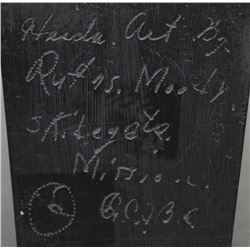 Haida Art By
Rufus. Moody.
Skidegate
Mission.
Q.C.I B.C